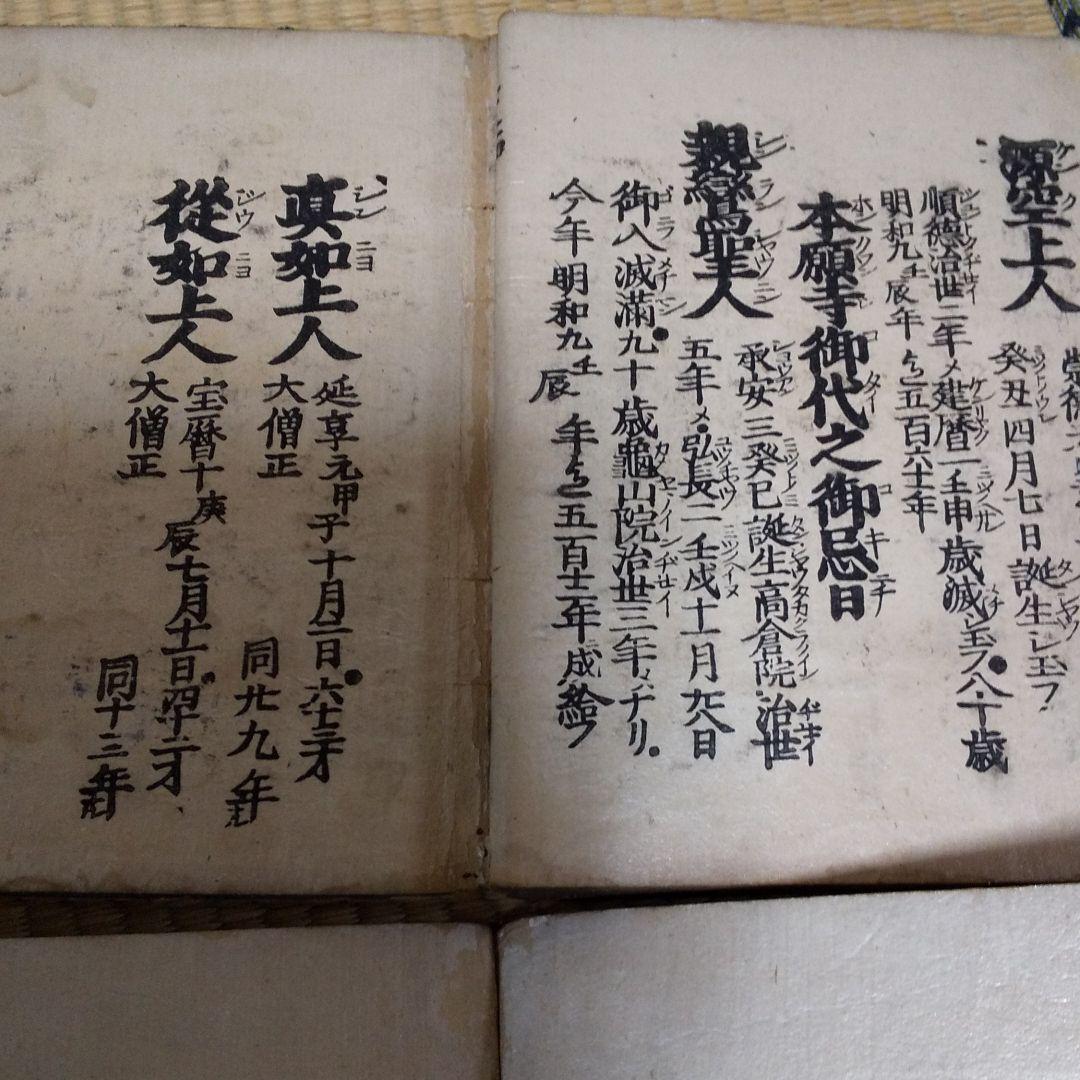 源空上人
癸丑四月七日誕生シ玉フ
順徳治世二年メ建暦二壬申歳滅シ玉フ八十歳
明和九壬辰年迠五百六十年
本願寺御代之御忌日
親鸞聖人
承安三癸巳誕生高倉院治世
五年メ弘長二壬戌十一月廿八日
御入滅滿九十歳龜山院治世三年メナリ
今年明和九壬辰年迠五百十一年成給フ
眞如上人
延享元甲子十月二日六十三才
大僧正 同廿九年
從如上人
宝暦十庚辰七月十一日四十二才
大僧正 同十三年